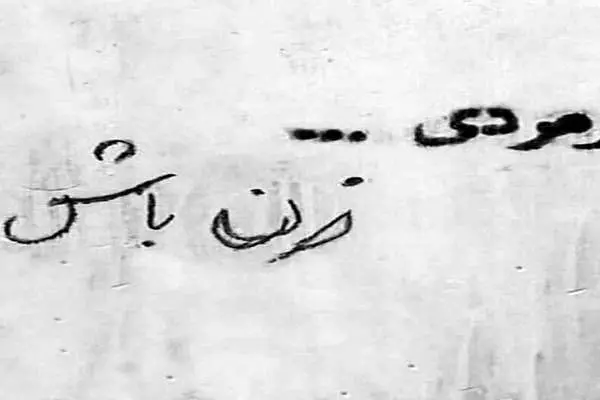 مردی ...
زن باش